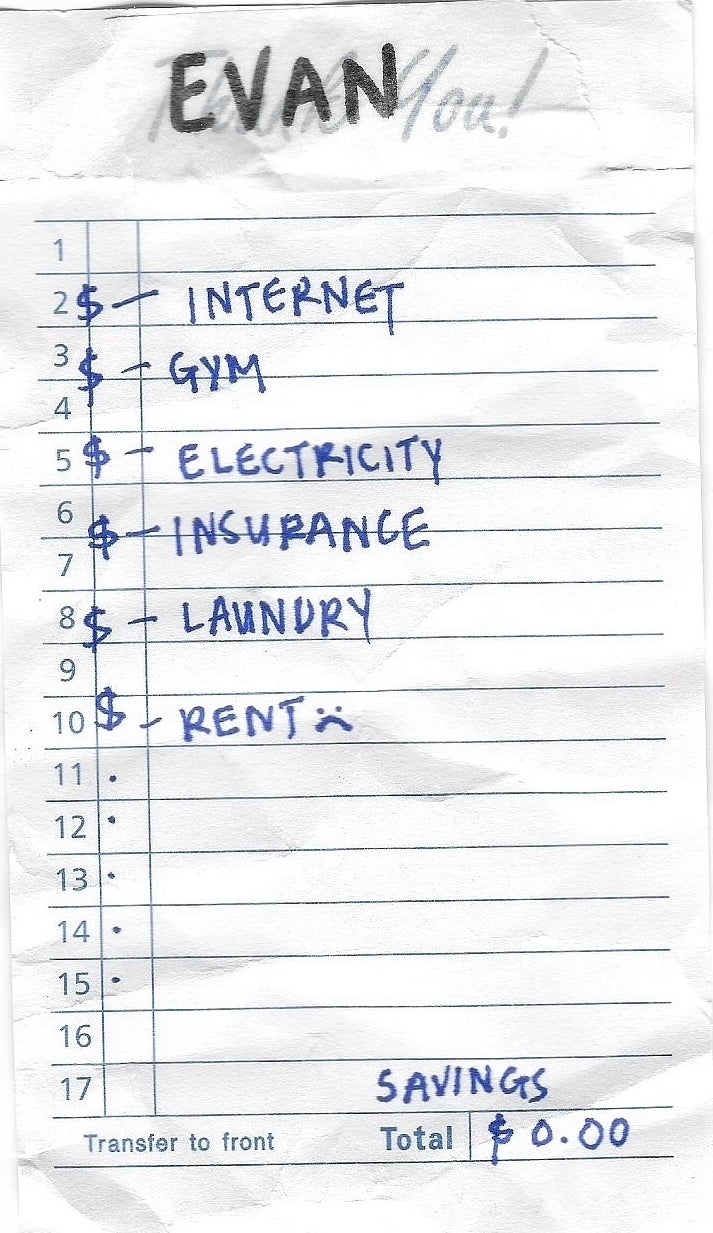 EVAN
Thank You!
1
2 $ — INTERNET
3 $ - GYM
4
5 $ - ELECTRICITY
6
$ - INSURANCE
7
8 $ - LAUNDRY
9
10 $ - RENT :(
11 .
12 .
13 .
14 .
15 .
16
17 SAVINGS
Transfer to front Total $ 0.00